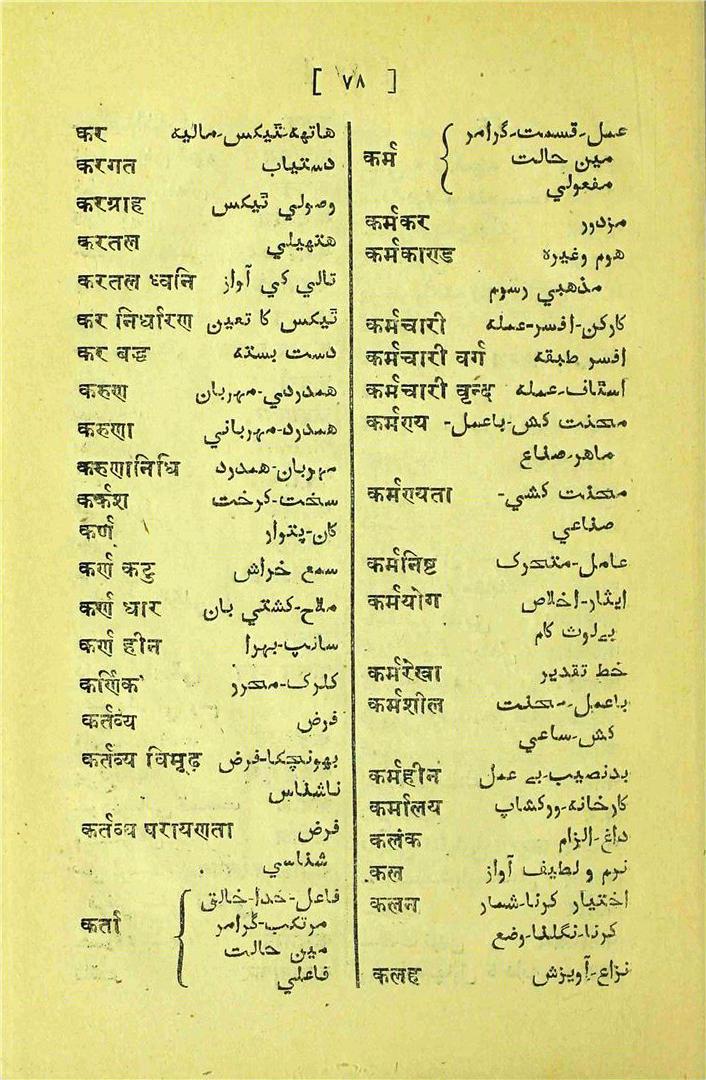 [ ۷۸ ]
कर هاتهه-ٹیکس-مالیه
करगत دستیاب
करग्राह وصولي ٹیکس
करतल هتهیلي
करतल ध्वनि تالي کي آواز
कर निर्धारण ٹیکس کا تعین
कर बद्ध دست بسته
करुण همدردي-مهربان
करुणा همدرد-مهرباني
करुणानिधि مهربان-همدرد
कर्कश سخت-کرخت
कर्ण کان-پتوار
कर्ण कटु سمع خراش
कर्ण धार ملاح-کشتي بان
कर्ण हीन سانپ-بهرا
कर्णिक کلرک-محرر
कर्तव्य فرض
कर्तव्य विमूढ़ بهونچکا-فرض
ناشناس
कर्तव्य परायणता فرض
شناسي
कर्ता فاعل-خدا-خالق
مرتکب-گرامر
مین حالت
فاعلي
कर्म عمل-قسمت-گرامر
مین حالت
مفعولي
कर्मकर مزدور
कर्मकाण्ड هوم وغیره
مذهبي رسوم
कर्मचारी کارکن-افسر-عمله
कर्मचारी वर्ग افسر طبقه
कर्मचारी वृन्द استاف-عمله
कर्मण्य محنت کش-باعمل-
ماهر-صناع
कर्मण्यता محنت کشي-
صناعي
कर्मनिष्ट عامل-متحرک
कर्मयोग ایثار-اخلاص
بےلوث کام
कर्मरेखा خط تقدیر
कर्मशील باعمل-محنت
کش-ساعي
कर्महीन بدنصیب-بے عمل
कर्मालय کارخانه-ورکشاپ
कलंक داغ-الزام
कल نرم و لطیف آواز
कलन اختیار کرنا-شمار
کرنا-نگلنا-وضع
कलह نزاع-آویزش